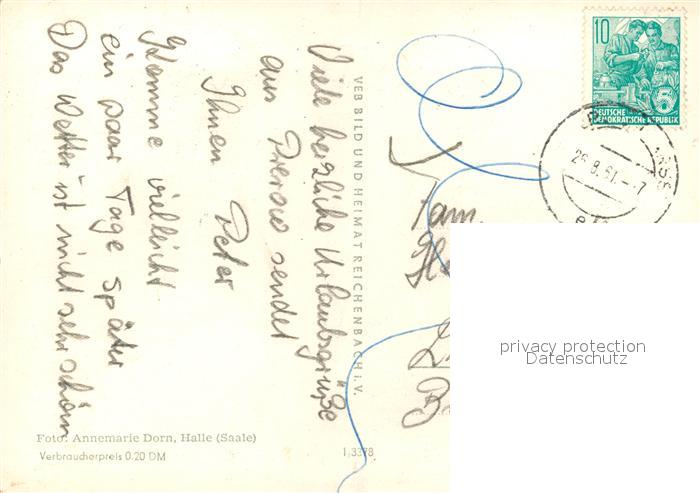 Viele herzliche Urlaubsgrüße
aus Prerow sendet
Ihnen Peter
Komme vielleicht
ein paar Tage später
Das Wetter ist nicht sehr schön
VEB BILD UND HEIMAT REICHENBACH i.V.
Foto: Annemarie Dorn, Halle (Saale)
Verbraucherpreis 0.20 DM
I 3378
10
DEUTSCHE
DEMOKRATISCHE REPUBLIK
5
26.8.61.-7
Fam.
privacy protection
Datenschutz